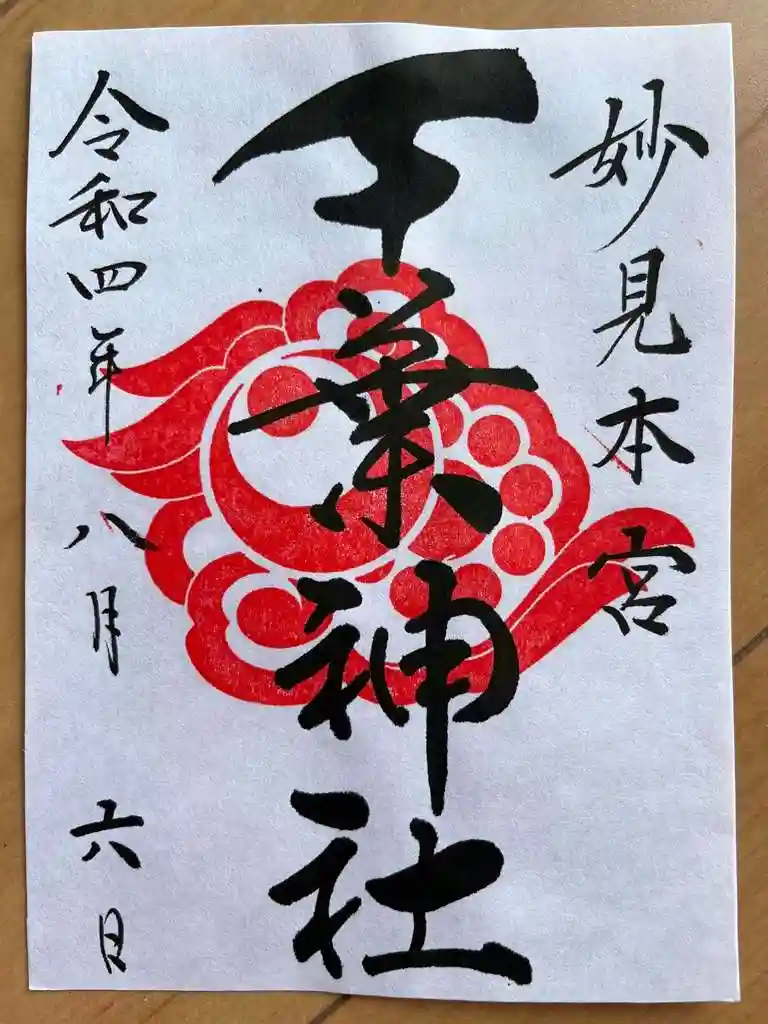 妙見本宮
千葉神社
令和四年八月六日